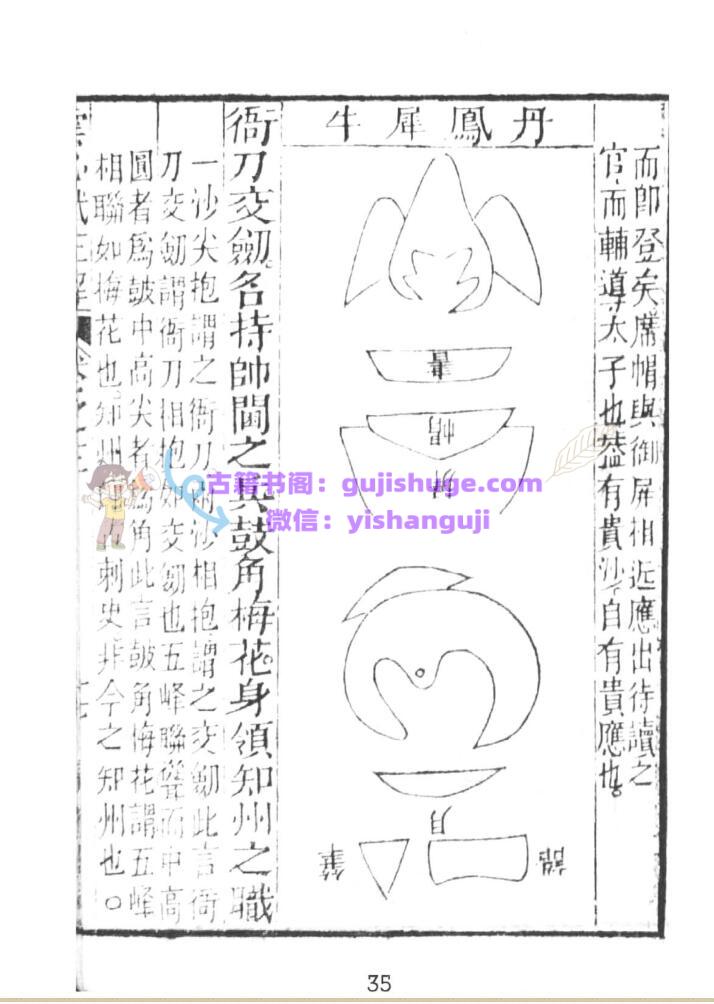 而即登矣席帽與御屏相近應出待讀之
官而輔導太子也葢有貴沙自有貴應也。
丹鳳犀牛
帽
月
誥
筆
衙刀交劒名持帥閫之兵鼓角梅花身領知州之職
一沙尖抱謂之衙刀兩沙相抱謂之交劒此言衙
刀交劒謂衙刀相抱如交劒也五峰聯聳而中高
圓者爲皷中高尖者爲角此言皷角梅花謂五峰
相聯如梅花也知州刺史非今之知州也。
古籍书阁：gujishuge.com
微信：yishanguji
35